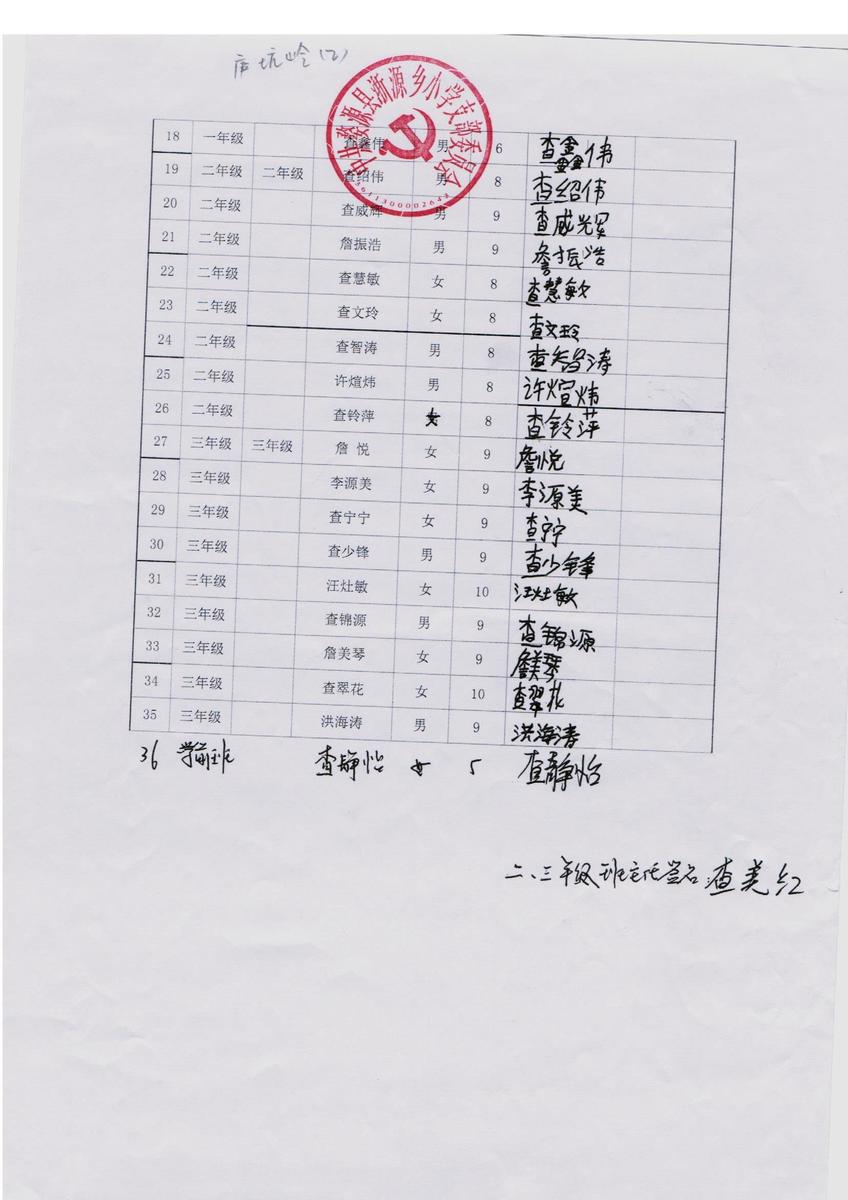 庐坑岭(2)
中共婺源县浙源乡小学支部委员会
18 一年级 查鑫伟 男 6 查鑫伟
19 二年级 二年级 查绍伟 男 8 查绍伟
20 二年级 查威辉 男 9 查威辉
21 二年级 詹振浩 男 9 詹振浩
22 二年级 查慧敏 女 8 查慧敏
23 二年级 查文玲 女 8 查文玲
24 二年级 查智涛 男 8 查智涛
25 二年级 许煊炜 男 8 许煊炜
26 二年级 查铃萍 女 8 查铃萍
27 三年级 三年级 詹 悦 女 9 詹悦
28 三年级 李源美 女 9 李源美
29 三年级 查宁宁 女 9 查宁宁
30 三年级 查少锋 男 9 查少锋
31 三年级 汪灶敏 女 10 汪灶敏
32 三年级 查锦源 男 9 查锦源
33 三年级 詹美琴 女 9 詹美琴
34 三年级 查翠花 女 10 查翠花
35 三年级 洪海涛 男 9 洪海涛
36 学前班 查静怡 女 5 查静怡
二、三年级班主任签名:查美红